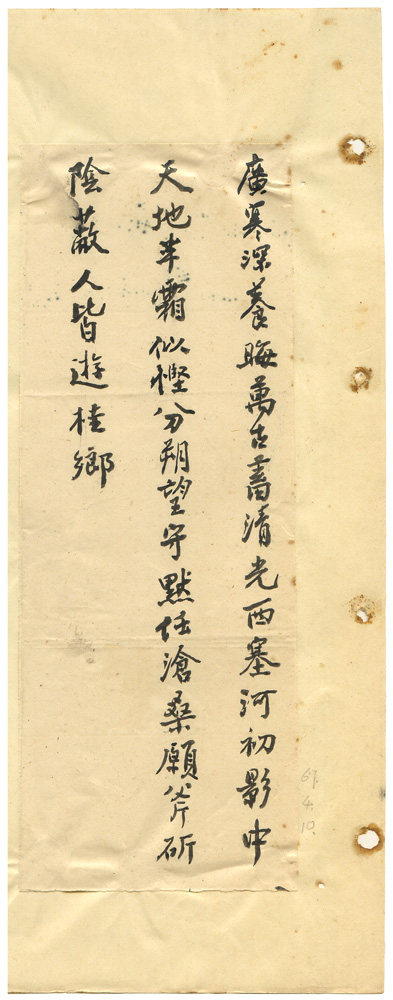 廣寒深養晦萬古蓄清光西塞河初影中
天地半霜似慳分朔望守默任滄桑願斧斫
陰蔽人皆遊桂鄉
61.
4.
10.